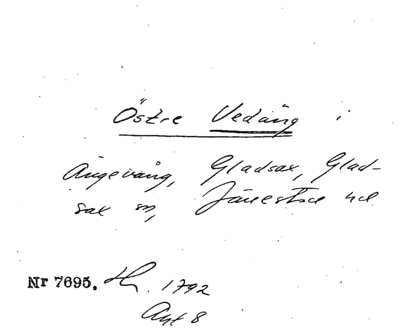 Östre Vedäng i
Ängevång, Gladsax, Glad-
sax sn, Järrestad hd
Nr 7695. Hr. 1792
Akt 8